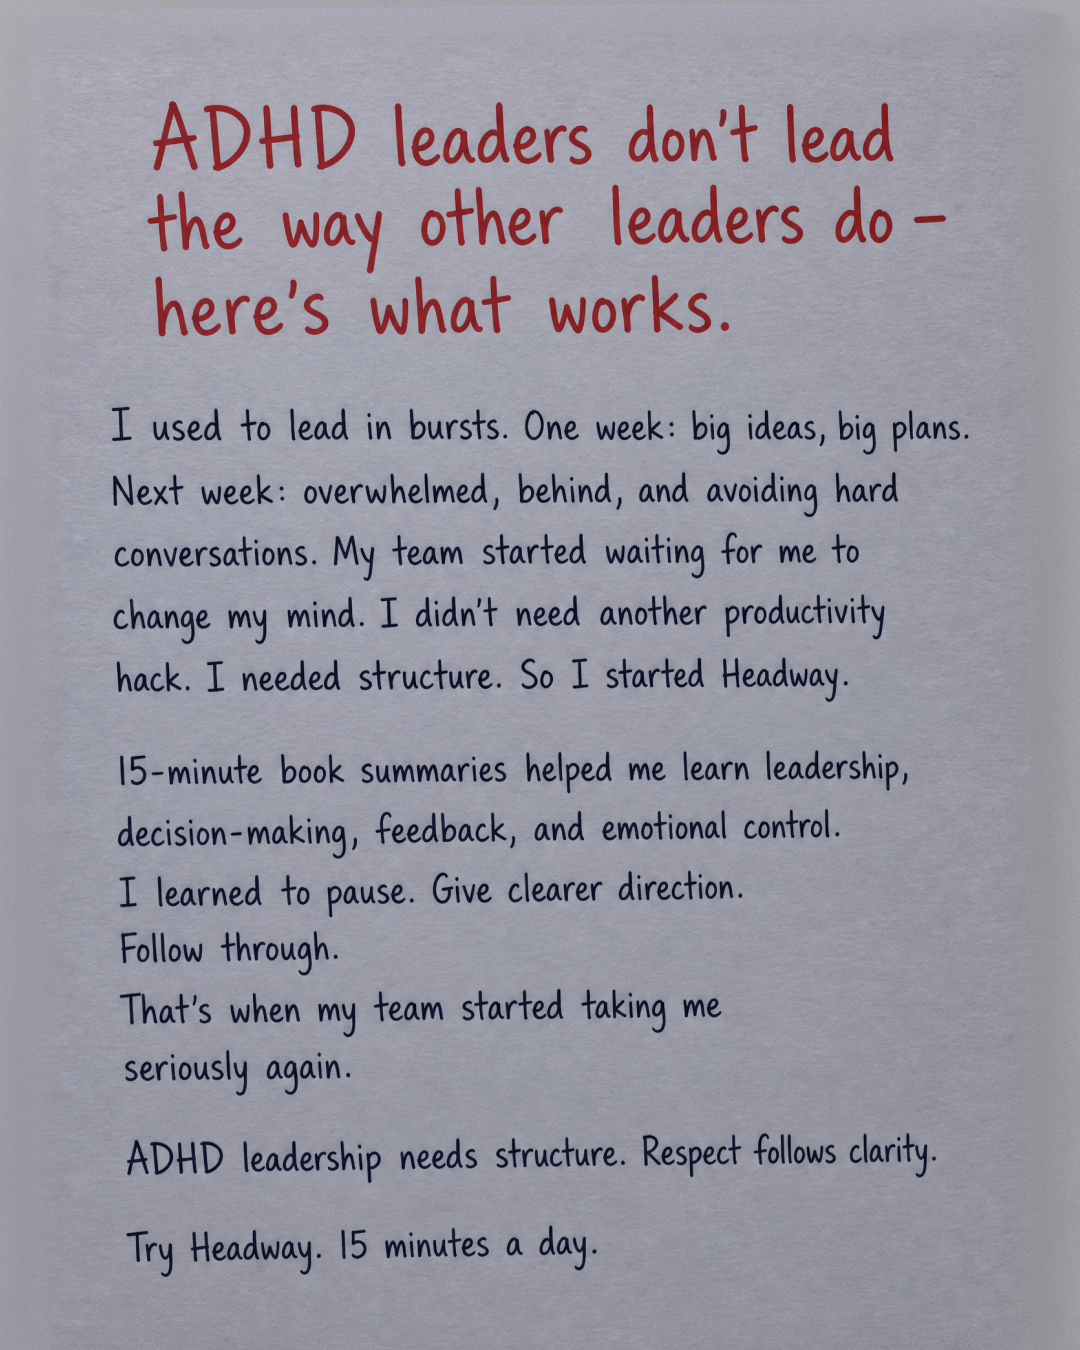 ADHD leaders don't lead
the way other leaders do –
here's what works.
I used to lead in bursts. One week: big ideas, big plans.
Next week: overwhelmed, behind, and avoiding hard
conversations. My team started waiting for me to
change my mind. I didn't need another productivity
hack. I needed structure. So I started Headway.
15-minute book summaries helped me learn leadership,
decision-making, feedback, and emotional control.
I learned to pause. Give clearer direction.
Follow through.
That's when my team started taking me
seriously again.
ADHD leadership needs structure. Respect follows clarity.
Try Headway. 15 minutes a day.